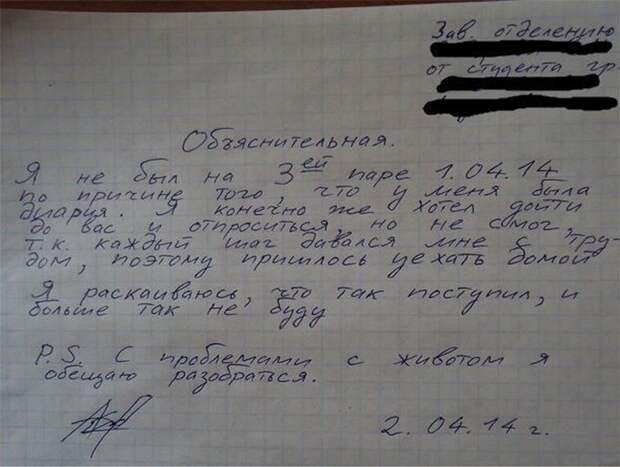 Зав. отделению
от студента гр.
Объяснительная.
Я не был на 3ей паре 1.04.14
по причине того, что у меня была
диария. Я конечно же хотел дойти
до вас и отпроситься, но не смог,
т.к. каждый шаг давался мне с тру-
дом, поэтому пришлось уехать домой
Я раскаиваюсь, что так поступил, и
больше так не буду
P.S. С проблемами с животом я
обещаю разобраться.
2.04.14 г.